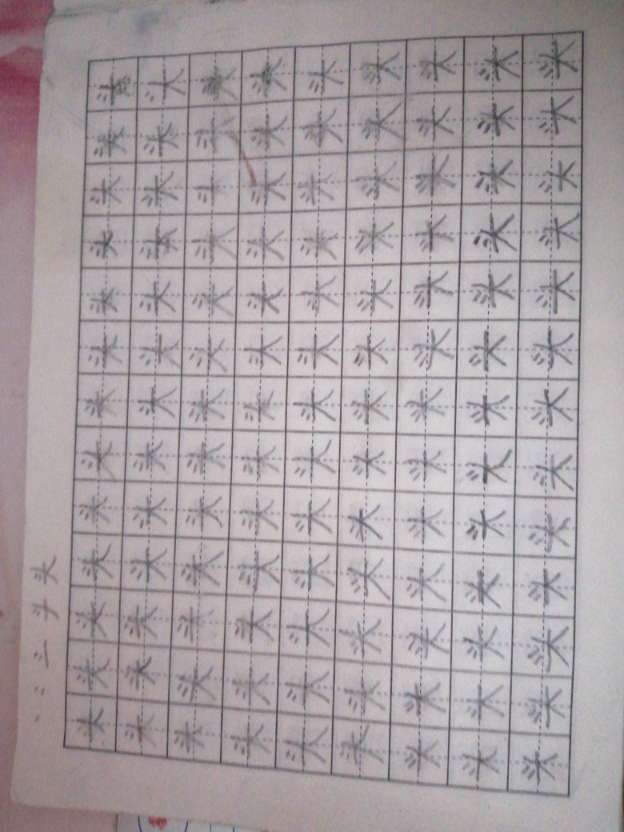 头
头头头头头头头头头头头头头
头头头头头头头头头头头头头
头头头头头头头头头头头头头
头头头头头头头头头头头头头
头头头头头头头头头头头头头
头头头头头头头头头头头头头
头头头头头头头头头头头头头
头头头头头头头头头头头头头
头头头头头头头头头头头头头